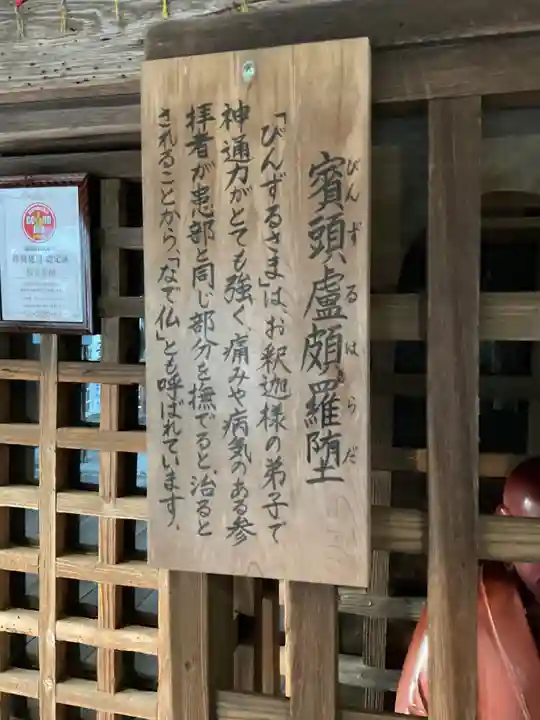 賓頭盧頗羅堕
びんずるはらだ
「びんずるさま」は、お釈迦様の弟子で
神通力がとても強く、痛みや病気のある参
拝者が患部と同じ部分を撫でると、治ると
されることから、「なで仏」とも呼ばれています。